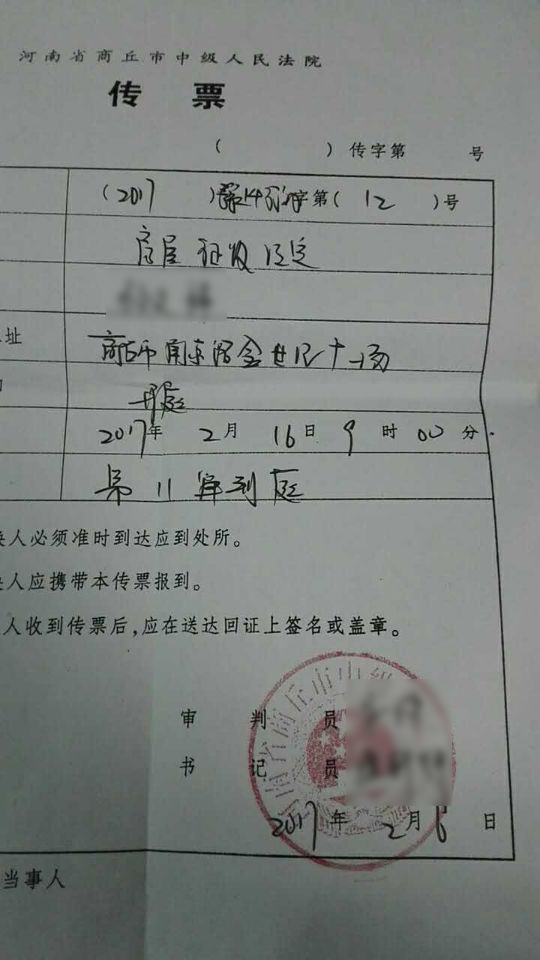 河南省商丘市中级人民法院
传 票
( ) 传字第 号
(2017 )豫14行初字第( 12 )号
房屋征收决定
址
商丘市
开庭
2017年 2月 16日 9时 00分
第11审判庭
人必须准时到达应到处所。
人应携带本传票报到。
人收到传票后,应在送达回证上签名或盖章。
审 判 员
书 记 员
2017年 2月6日
当事人